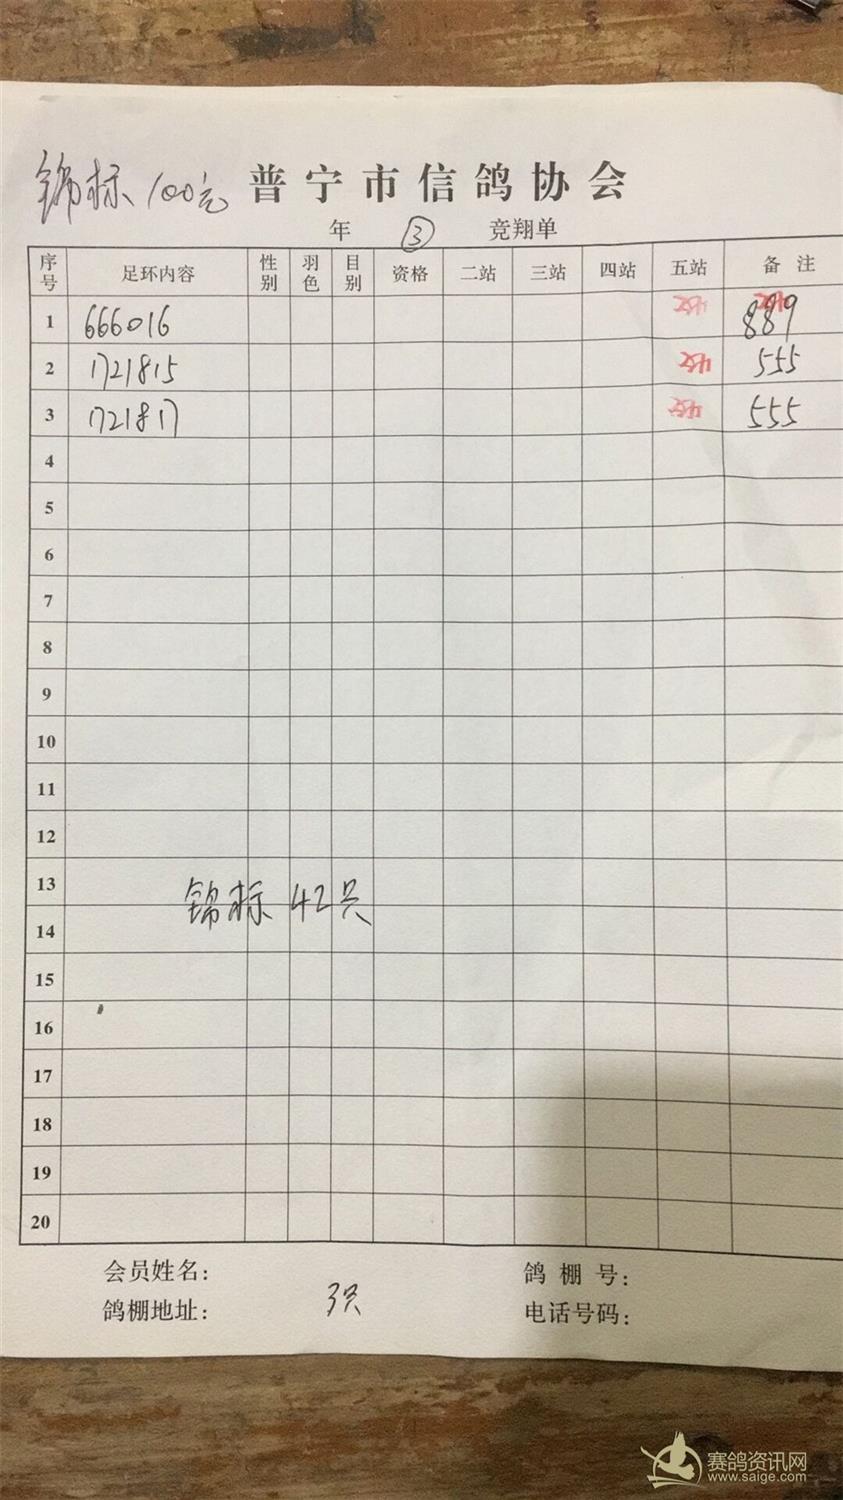 锦标 100元 普宁市信鸽协会
年 ③ 竞翔单
序号 足环内容 性别 羽色 目别 资格 二站 三站 四站 五站 备 注
1 666016 收 收 889
2 1721815 收 555
3 1721817 收 555
4
5
6
7
8
9
10
11
12
13
锦标 42只
14
15
16
17
18
19
20
会员姓名: 鸽 棚 号:
鸽棚地址: 3只 电话号码:
赛鸽资讯网
www.saige.com